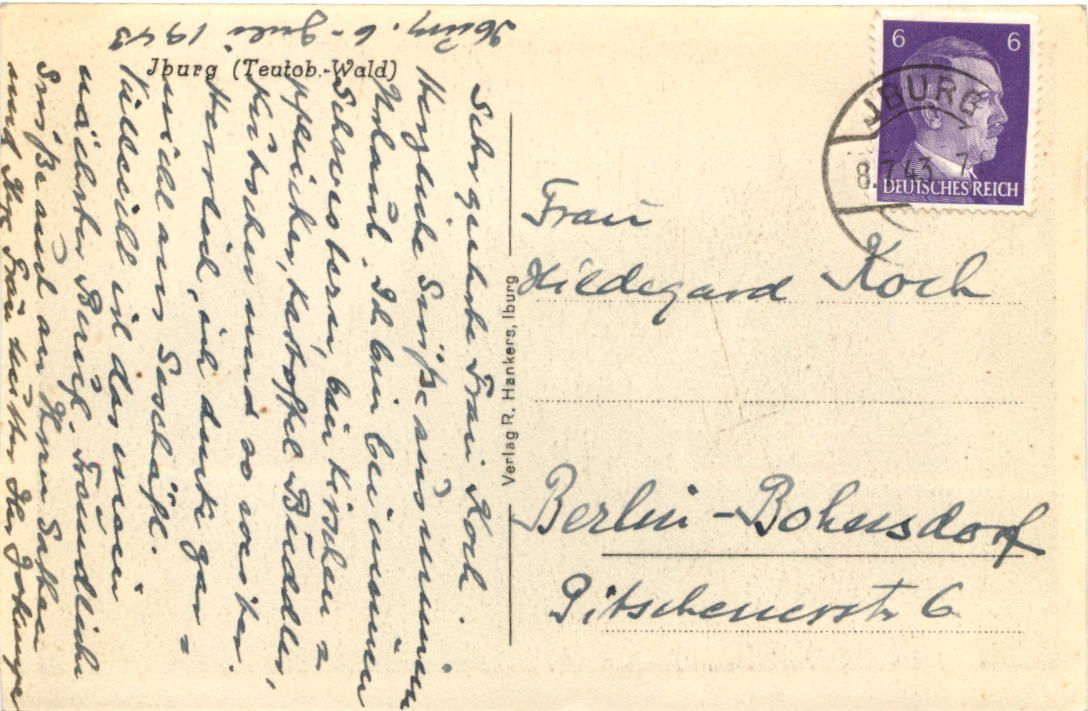 Iburg. 6. Juli 1943
Jburg (Teutob.-Wald)
Sehr geehrte Frau Koch
Herzliche Grüße aus meinem
Urlaub. Ich bin bei meinen
Schwestern, bei Kirschen
pflücken, Kartoffel Buddeln,
und so weiter.
Herrlich, ich denke gar
nicht ans Geschäft.
Vielleicht ist das mein
nächster Beruf. Freundliche
Grüße auch an Ihren Gatten
und Ihre
Verlag R. Hankers, Iburg
6 6
DEUTSCHES REICH
JBURG
8.7.43
Frau
Hildegard Koch
Berlin-Bohnsdorf
Pitschenerstr 6